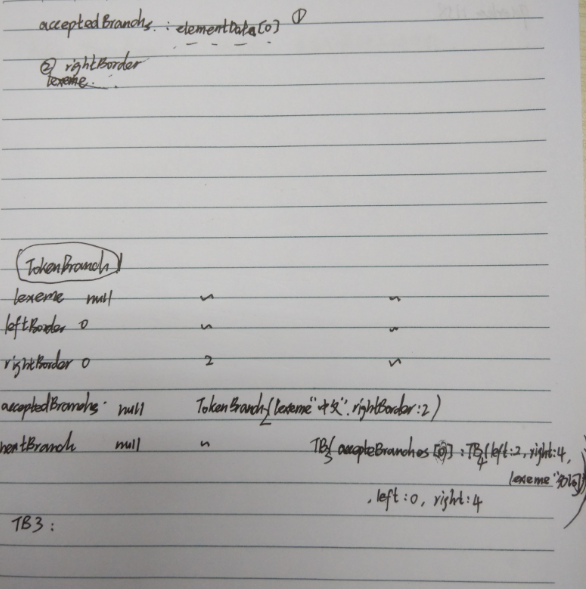 acceptedBranchs. : elementData[0] ①
② rightBorder
lexeme.
TokenBranch
lexeme null ~ ~
leftBorder 0 ~ ~
rightBorder 0 2 ~
acceptedBranchs. null TokenBranch{lexeme"中文".rightBorder:2}
nextBranch null ~ TB3{accepteBranches[0]:TB4{left:2,right:4,
lexeme"知识"}}
.left:0, right:4
TB3: